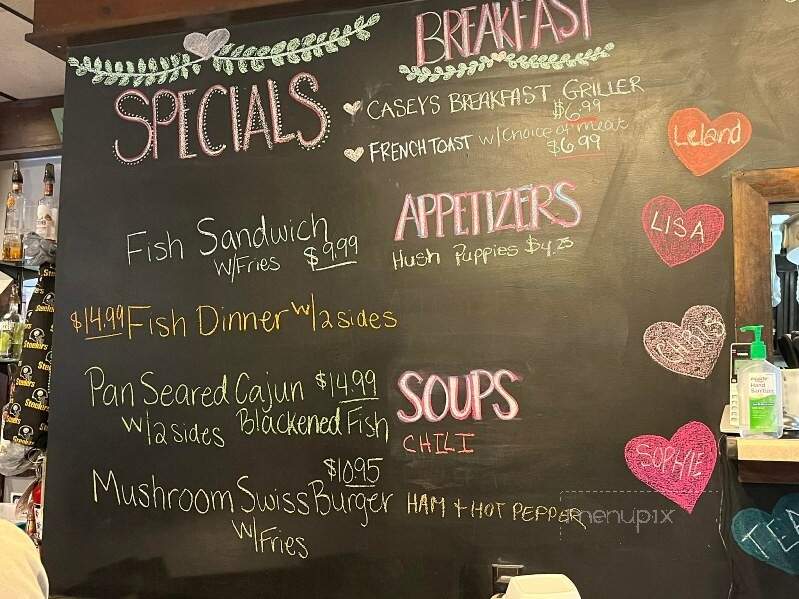 SPECIALS
Fish Sandwich
W/Fries $9.99
$14.99 Fish Dinner w/2 sides
Pan Seared Cajun $14.99
w/2 sides Blackened Fish
$10.95
Mushroom Swiss Burger
w/Fries
BREAKFAST
CASEYS BREAKFAST GRILLER
$6.99
FRENCH TOAST w/choice of meat
$6.99
APPETIZERS
Hush Puppies $4.25
SOUPS
CHILI
HAM + HOT PEPPER
menupix
Leland
LISA
SOPHIE
Hand
Sanitizer
Steelers